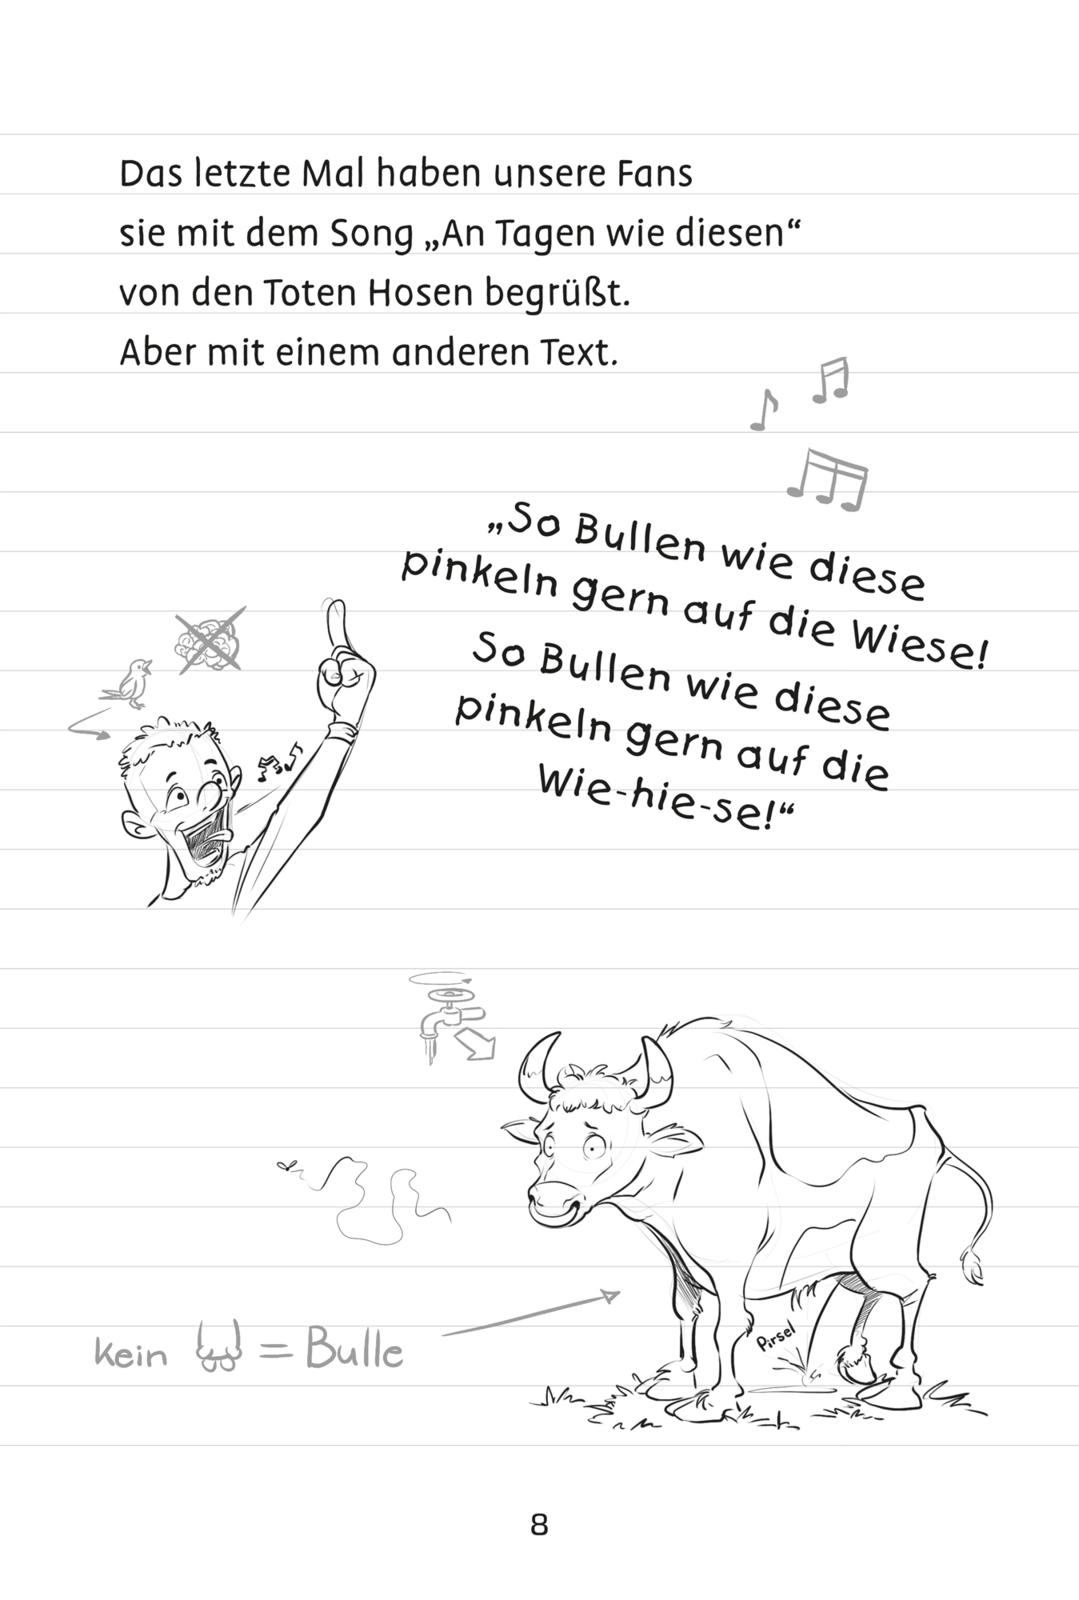 Das letzte Mal haben unsere Fans
sie mit dem Song „An Tagen wie diesen“
von den Toten Hosen begrüßt.
Aber mit einem anderen Text.
„So Bullen wie diese
pinkeln gern auf die Wiese!
So Bullen wie diese
pinkeln gern auf die
Wie-hie-se!“
kein = Bulle
Pirsel
8